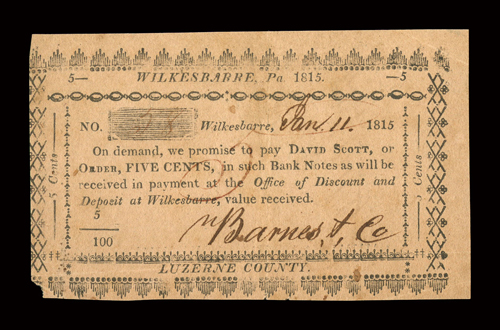 5— WILKESBARRE, Pa 1815. —5
NO. Wilkesbarre, Jan 11. 1815
On demand, we promise to pay DAVID SCOTT, or
ORDER, FIVE CENTS, in such Bank Notes as will be
received in payment at the Office of Discount and
Deposit at Wilkesbarre, value received.
5
100
Barnes & Co
LUZERNE COUNTY.
5 Cents
5 Cents